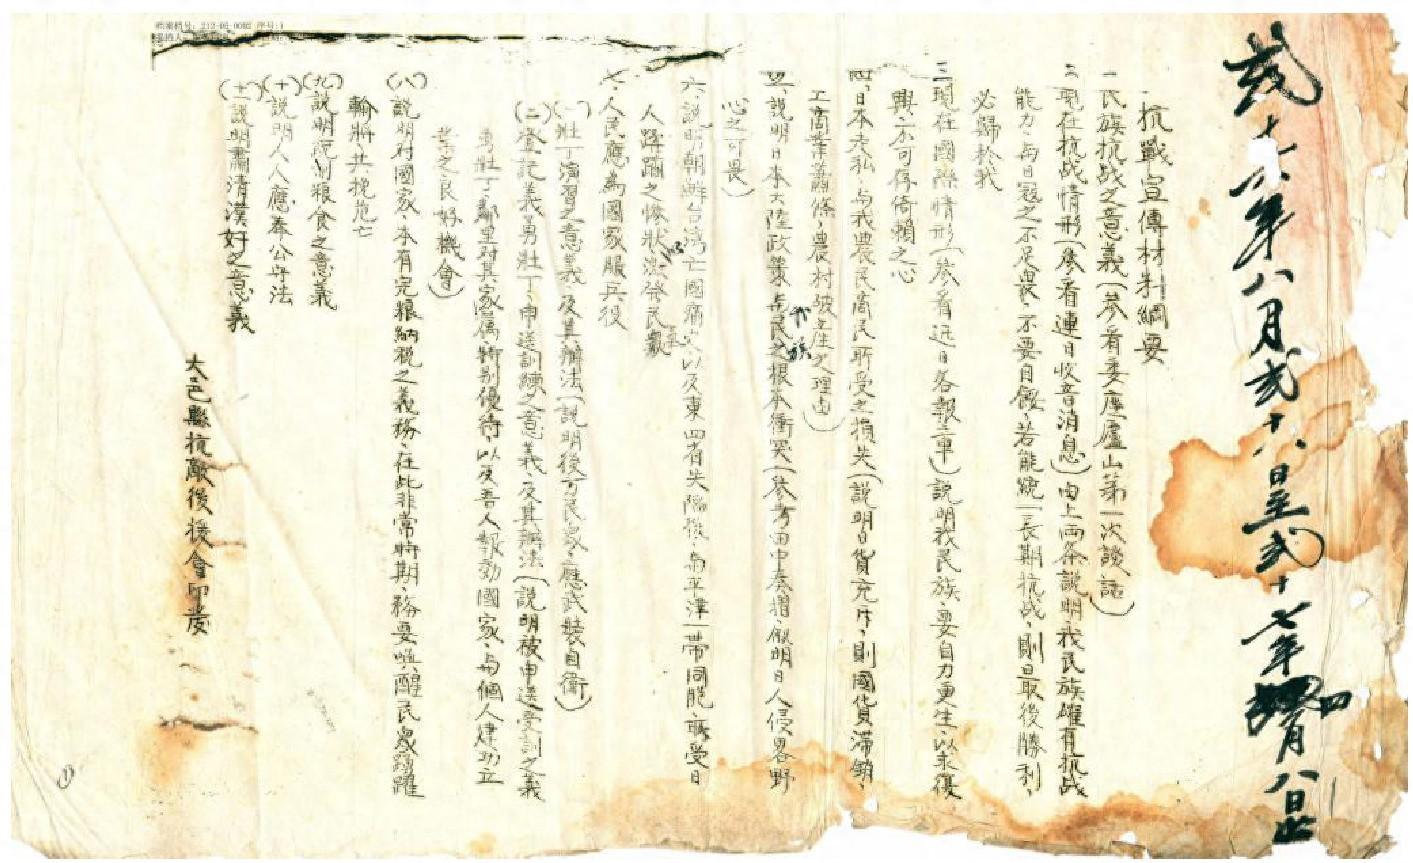 档案档号：212-05-0082 序号：1
贰十六年八月贰十八日至贰十七年四月八日止
抗戰宣傳材料綱要
一 民族抗战之意義（参看委座廬山第一次談話）
二 現在抗战情形（参看連日收音消息）由上両条説明、我民族確有抗战
能力、与日冦之不足畏、不要自餒、若能統一長期抗战、則最後勝利、
必歸於我
三 現在國際情形（参看近日各報章）説明我民族、要自力更生、以求復
興、不可存倚賴之心
四、日本走私、与我農民商民所受之損失（説明日貨充斥、則國貨滞銷、
工商業蕭條、農村破産之理由）
五 説明日本大陸政策与民族之根本衝突（参考田中奏摺、説明日人侵畧野
心之可畏）
六、説明朝鮮台湾亡國痛史以及東四省失陷後、与平津一帶同胞、所受日
人蹂躏之惨状激發民衆
七、人民應為國家服兵役
（一）壯丁演習之意義、及其辦法（説明後方民衆、應武裝自衛）
（二）登記義勇壯丁、申送訓練之意義、及其辦法（説明被申送受訓之義
勇壯丁、鄰里対其家属、特别優待、以及吾人報効國家、与個人建功立
業之良好機會）
（八）説明対國家、本有完粮納税之義務、在此非常時期、務要喚醒民衆踴躍
輸將、共挽危亡
（九）説明統制粮食之意義
（十）説明人人應奉公守法
（十一）説明肅清漢奸之意義
大邑縣抗敵後援會印發